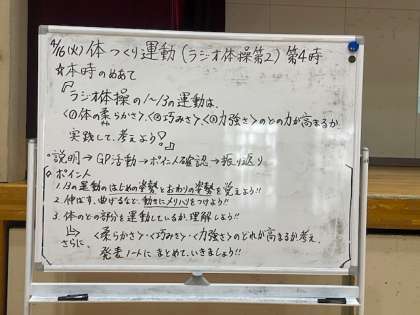 4/16(火) 体つくり運動(ラジオ体操第2) 第4時
☆本時のめあて
『ラジオ体操の1〜13の運動は、
〈①体の柔らかさ〉、〈②巧みさ〉、〈③力強さ〉のどの力が高まるか、
実践して、考えよう!』
・説明→GP活動→ポイント確認→振り返り
◎ポイント
1. 13の運動のはじめの姿勢とおわりの姿勢を覚えよう!!
2. 伸ばす、曲げるなど、動きにメリハリをつけよう!!
3. 体のどの部分を運動しているか、理解しよう!!
さらに、〈柔らかさ〉・〈巧みさ〉・〈力強さ〉のどれが高まるか考え、
発表ノートにまとめていきましょう!!